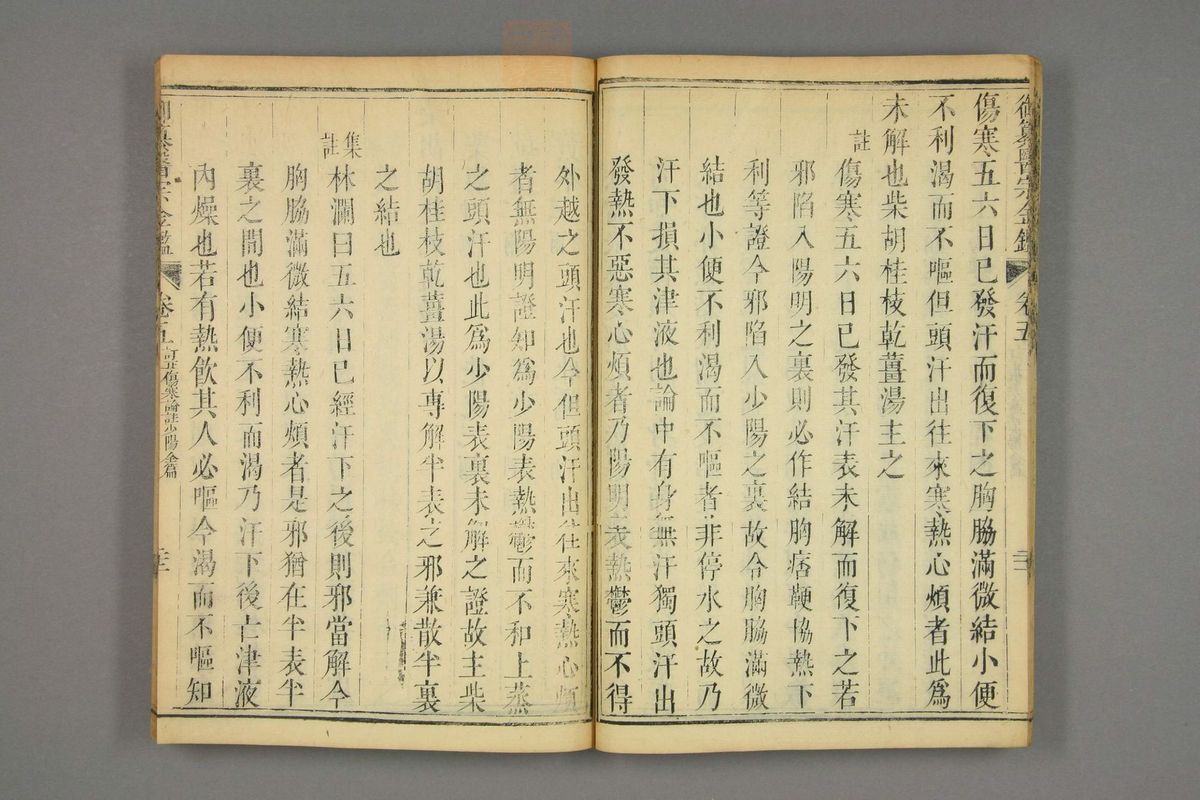 御纂醫宗金鑑 卷五
傷寒五六日已發汗而復下之胸脇滿微結小便
不利渴而不嘔但頭汗出往來寒熱心煩者此爲
未解也柴胡桂枝乾薑湯主之
註傷寒五六日已發其汗表未解而復下之若
邪陷入陽明之裏則必作結胸痞鞕協熱下
利等證今邪陷入少陽之裏故令胸脇滿微
結也小便不利渴而不嘔者非停水之故乃
汗下損其津液也論中有身無汗獨頭汗出
發熱不惡寒心煩者乃陽明表熱鬱而不得
外越之頭汗也今但頭汗出往來寒熱心煩
者無陽明證知爲少陽表熱鬱而不和上蒸
之頭汗也此爲少陽表裏未解之證故主柴
胡桂枝乾薑湯以專解半表之邪兼散半裏
之結也
集註林瀾曰五六日已經汗下之後則邪當解今
胸脇滿微結寒熱心煩者是邪猶在半表半
裏之間也小便不利而渴乃汗下後亡津液
內燥也若有熱飲其人必嘔今渴而不嘔知
纂醫宗金鑑 卷五 訂正傷寒論註少陽全篇